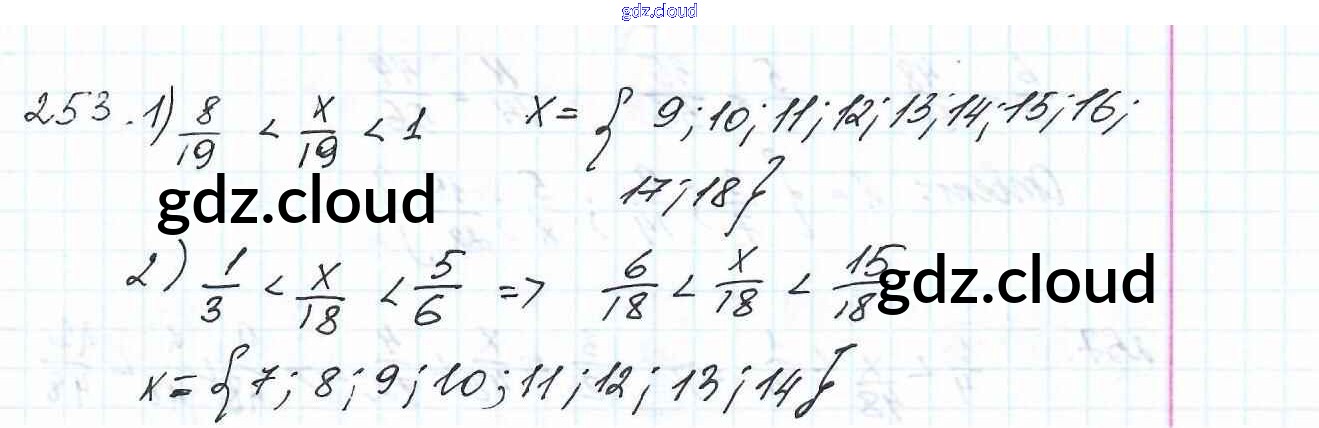 gdz.cloud
253. 1) 8/19 < x/19 < 1 x = { 9; 10; 11; 12; 13; 14; 15; 16;
17; 18}
gdz.cloud
2) 1/3 < x/18 < 5/6 => 6/18 < x/18 < 15/18 gdz.cloud
x = {7; 8; 9; 10; 11; 12; 13; 14}